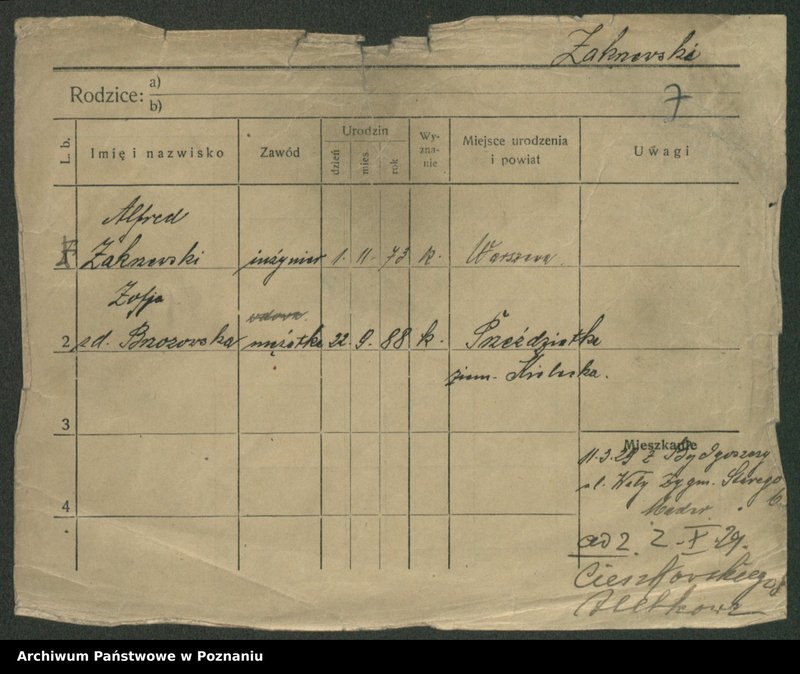 Żaknowski
Rodzice: a)
b)
7
L. b.
Imię i nazwisko
Zawód
Urodzin
dzień
mies.
rok
Wy-
zna-
nie
Miejsce urodzenia
i powiat
Uwagi
Alfred
Żaknowski inżynier 1. 11. 73 k. Warszawa
Zofja
wdowa
2 zd. Brzozowska mężatka 22. 9. 88 k.
ziem. Kielecka.
3
Mieszkanie
11.3.29 z Bydgoszczy
ul. Zygm. Starego
4
ad 2. 2.X.29.
Cieszkowskiego 8